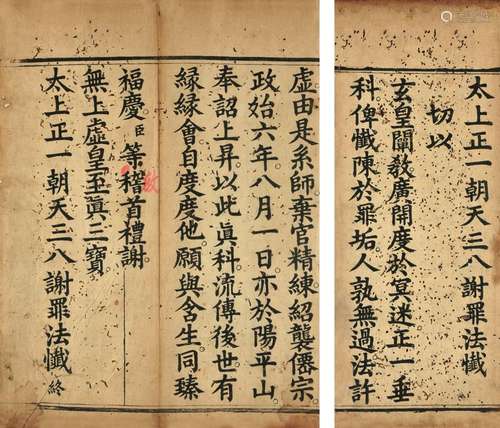 太上正一朝天三八謝罪法懺
切以
玄皇闡敎廣開度於冥迷正一垂
科俾懺陳於罪垢人孰無過法許
虛由是系師棄官精練紹襲僊宗
政始六年八月一日亦於陽平山
奉詔上昇以此眞科流傳後世有
緣緣會自度度他願與含生同臻
福慶臣等稽首禮謝
無上虛皇至眞三寶
太上正一朝天三八謝罪法懺終